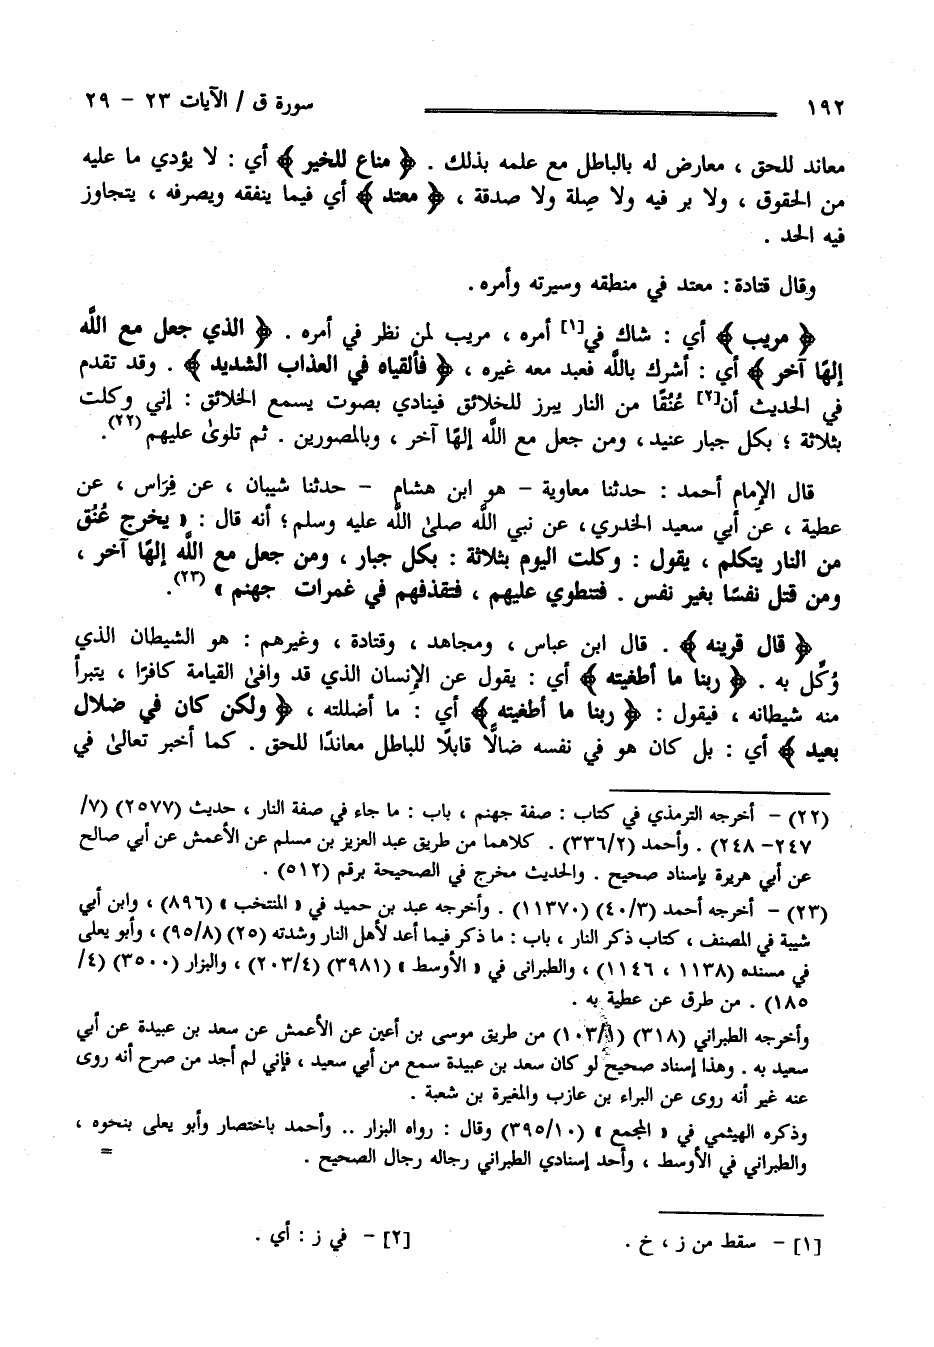 ١٩٢ سورة ق / الآيات ٢٣ - ٢٩
معاند للحق ، معارض له بالباطل مع علمه بذلك . ﴿ مناع للخير ﴾ أي : لا يؤدي ما عليه
من الحقوق ، ولا بر فيه ولا صِلة ولا صدقة ، ﴿ معتد ﴾ أي فيما ينفقه ويصرفه ، يتجاوز
فيه الحد .
وقال قتادة : معتد في منطقه وسيرته وأمره .
﴿ مريب ﴾ أي : شاك في[١] أمره ، مريب لمن نظر في أمره . ﴿ الذي جعل مع اللَّه
إلهًا آخر ﴾ أي : أشرك باللَّه فعبد معه غيره ، ﴿ فألقياه في العذاب الشديد ﴾ . وقد تقدم
في الحديث أن[٢] عُنُقًا من النار يبرز للخلائق فينادي بصوت يسمع الخلائق : إني وكلت
بثلاثة ؛ بكل جبار عنيد ، ومن جعل مع اللَّه إلهًا آخر ، وبالمصورين . ثم تلوىٰ عليهم (٢٢).
قال الإِمام أحمد : حدثنا معاوية - هو ابن هشام - حدثنا شيبان ، عن فِرَاس ، عن
عطية ، عن أبي سعيد الخدري ، عن نبي اللَّه صلىٰ اللَّه عليه وسلم ؛ أنه قال : « يخرج عُنُق
من النار يتكلم ، يقول : وكلت اليوم بثلاثة : بكل جبار ، ومن جعل مع اللَّه إلهًا آخر ،
ومن قتل نفسًا بغير نفس . فتنطوي عليهم ، فتقذفهم في غمرات جهنم » (٢٣).
﴿ قال قرينه ﴾ . قال ابن عباس ، ومجاهد ، وقتادة ، وغيرهم : هو الشيطان الذي
وُكِّل به . ﴿ ربنا ما أطغيته ﴾ أي : يقول عن الإِنسان الذي قد وافىٰ القيامة كافرًا ، يتبرأ
منه شيطانه ، فيقول : ﴿ ربنا ما أطغيته ﴾ أي : ما أضللته ، ﴿ ولكن كان في ضلال
بعيد ﴾ أي : بل كان هو في نفسه ضالًّا قابلًا للباطل معاندًا للحق . كما أخبر تعالىٰ في
(٢٢) - أخرجه الترمذي في كتاب : صفة جهنم ، باب : ما جاء في صفة النار ، حديث (٢٥٧٧) (٧/
٢٤٧- ٢٤٨) . وأحمد (٣٣٦/٢) . كلاهما من طريق عبد العزيز بن مسلم عن الأعمش عن أبي صالح
عن أبي هريرة بإسناد صحيح . والحديث مخرج في الصحيحة برقم (٥١٢) .
(٢٣) - أخرجه أحمد (٤٠/٣) (١١٣٧٠) . وأخرجه عبد بن حميد في « المنتخب » (٨٩٦) ، وابن أبي
شيبة في المصنف ، كتاب ذكر النار ، باب : ما ذكر فيما أعد لأهل النار وشدته (٢٥) (٩٥/٨) ، وأبو يعلى
في مسنده (١١٣٨ ، ١١٤٦) ، والطبرانى في « الأوسط » (٣٩٨١) (٢٠٣/٤) ، والبزار (٣٥٠٠) (٤/
١٨٥) . من طرق عن عطية به .
وأخرجه الطبراني (٣١٨) (١٠٣/١) من طريق موسى بن أعين عن الأعمش عن سعد بن عبيدة عن أبي
سعيد به . وهذا إسناد صحيح لو كان سعد بن عبيدة سمع من أبي سعيد ، فإني لم أجد من صرح أنه روى
عنه غير أنه روى عن البراء بن عازب والمغيرة بن شعبة .
وذكره الهيثمي في « المجمع » (٣٩٥/١٠) وقال : رواه البزار .. وأحمد باختصار وأبو يعلى بنحوه ،
والطبراني في الأوسط ، وأحد إسنادي الطبراني رجاله رجال الصحيح . =
[١] - سقط من ز ، خ . [٢] - في ز : أي .